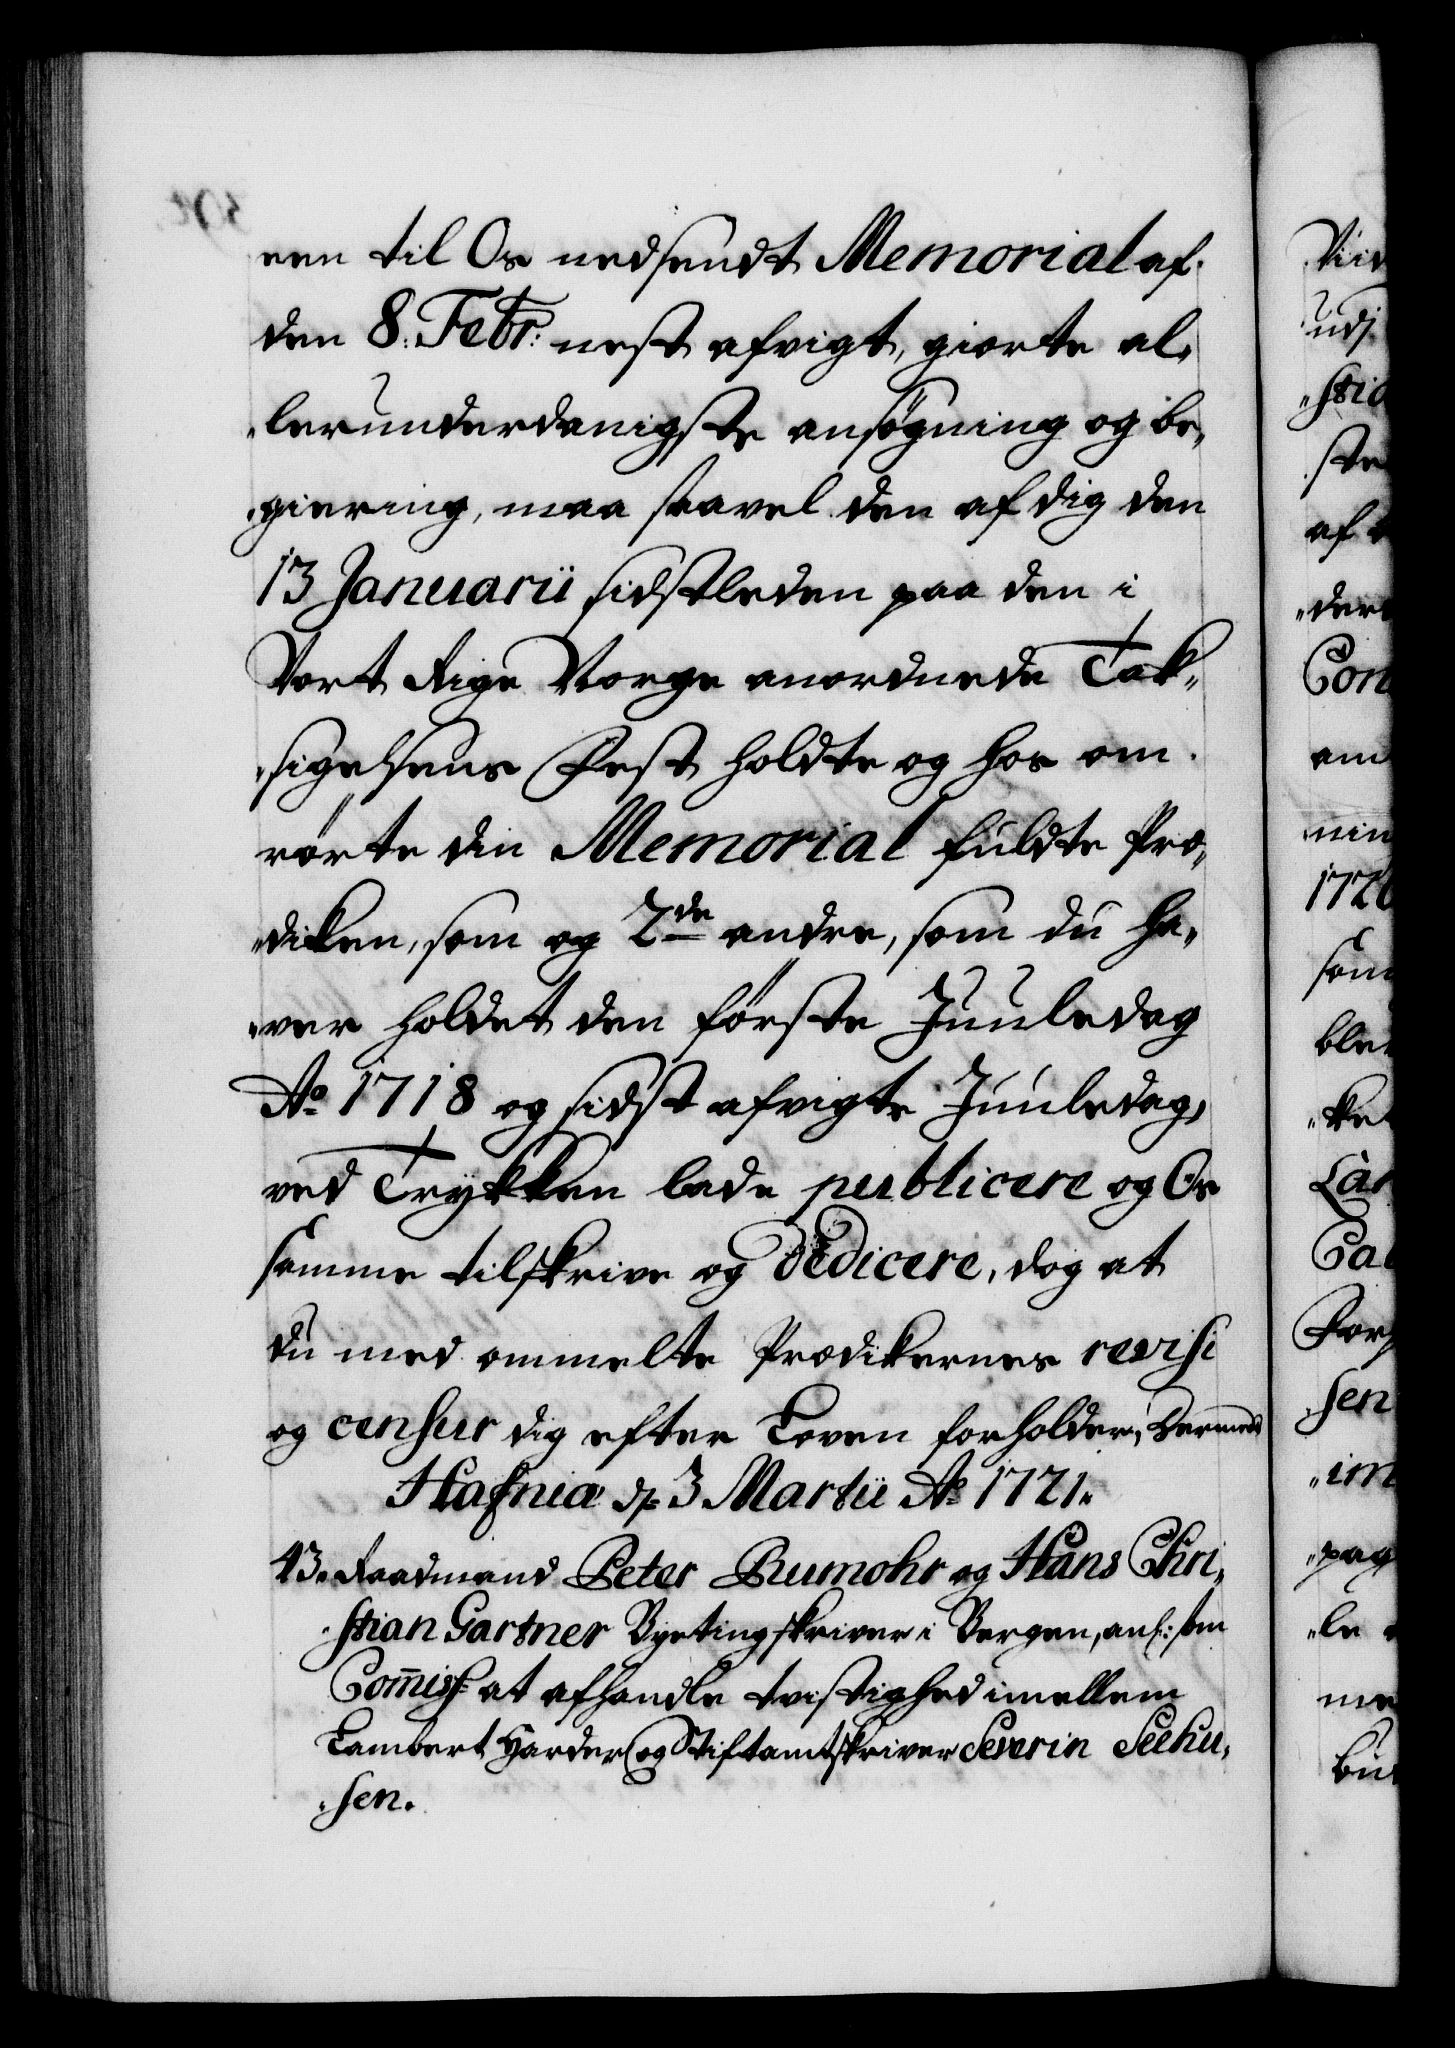 een til Os nedsendt Memorial af
den 8: Febr: nest afvigt, giorte al,
„lerunderdanigste ansøgning og be,
„giering, maa saavel den af dig den
13 Januarii sidstleden paa den i
Vort Rige Norge anordnede Tak„
„sigelsens Fest holdte og hos om„
rørte din Memorial fulte Præ„
„diken, som og 2de andre, som du ha„
„ver holdet den første Juuledag
Ao 1718 og sidst afvigte Juuledag,
ved Trykken lade publicere og Os
samme tilskrive og dedicere, dog at
du med ommelte Prædikernes revisi
og censur dig efter Loven forholder, Dermed
Hafniæ d= 3 Martii Ao 1721.
43. Raadmand Peter Rumohr og Hans Chri„
„stian Gartner Byetingskriver i Bergen, anl: som
Com̅iss: at afhandle tvistighed imellem
Lambert Harder og Stiftamtskriver Severin Seehu„
„sen.